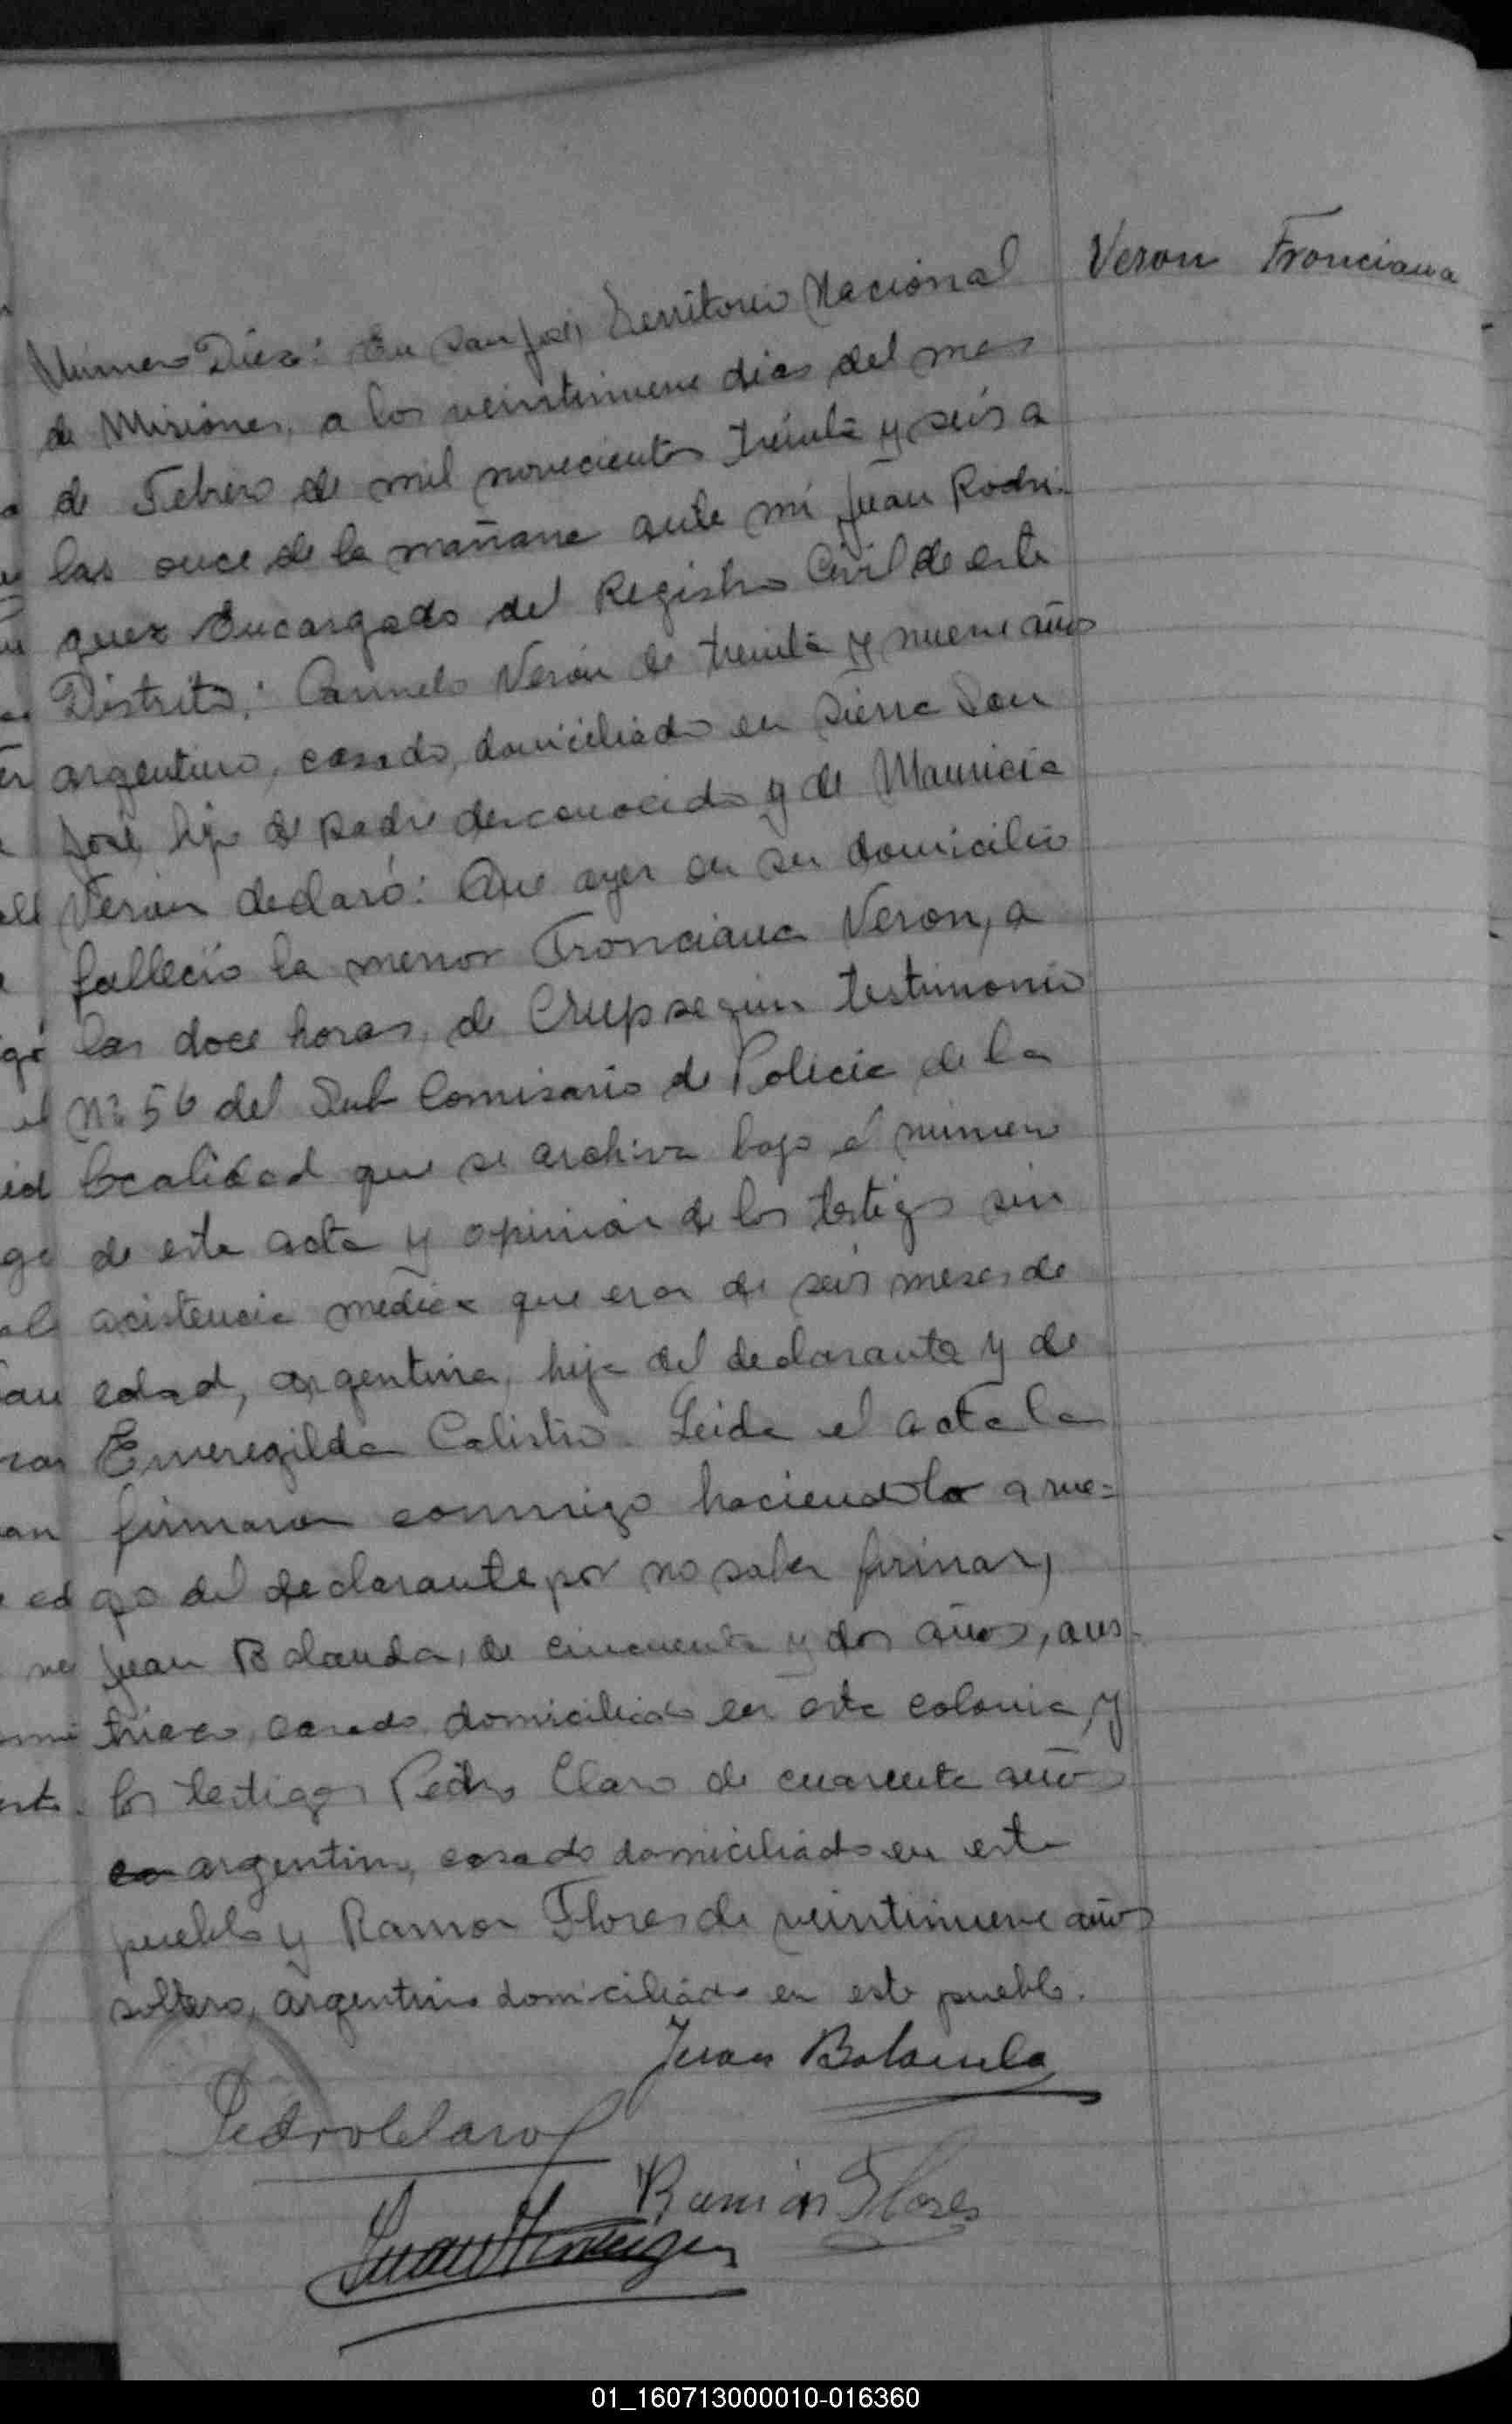 Veron Fronciana
Número Diez: En San José, Territorio Nacional
de Misiones, a los veintinueve dias del mes
de Febrero de mil novecientos treinta y seis a
las once de la mañana ante mi Juan Rodri-
guez Encargado del Registro Civil de este
Distrito: Carmelo Verón de treinta y nueve años
argentino, casado, domiciliado en Sierra San
José, hijo de padre desconocido y de Mauricia
Verón declaró: Que ayer en su domicilio
falleció la menor Fronciana Veron, a
las doce horas, de Crup segun testimonio
Nº 56 del Sub Comisario de Policia de la
localidad que se archiva bajo el número
de este acta y opinión de los testigos sin
acistencia medica que era de seis meses de
edad, argentina, hija del declarante y de
Emeregilda Calistro. Leida el acta la
firmaron conmigo haciendolo a rue=
go del declarante por no saber firmar,
Juan Bolanda, de cincuenta y dos años, aus-
triaco, casado domiciliado en esta colonia, y
los testigos Pedro Claro de cuarenta años
argentino, casado domiciliado en este
pueblo y Ramon Flores de veintinueve años
soltero, argentino domiciliado en este pueblo.
Juan Bolanda
Pedro Claro
Ramón Flores
01_160713000010-016360